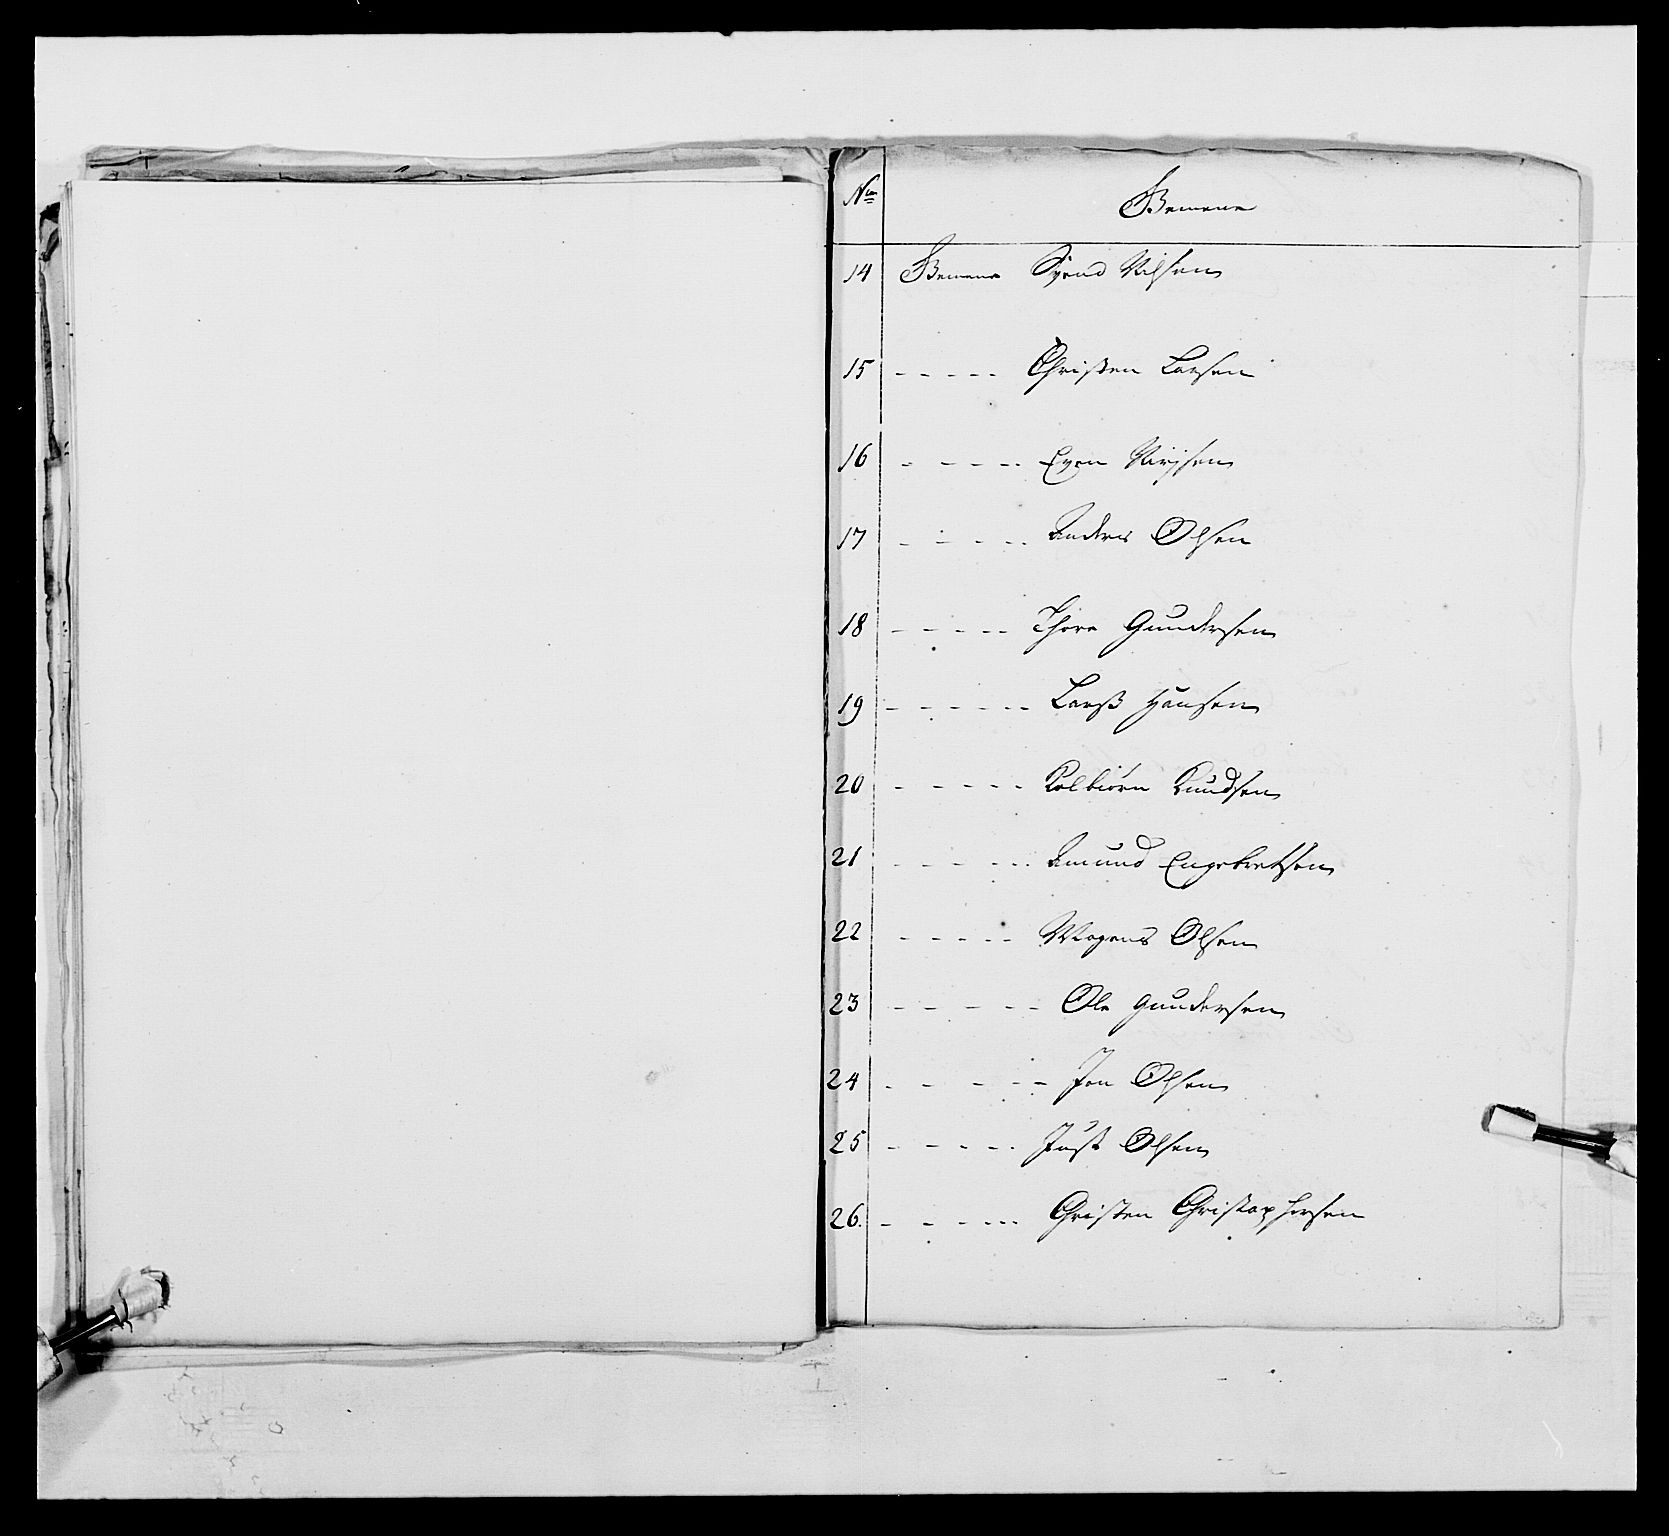 No
14 Svend Nilsen
15 - - - - - Christen Larsen
16 - - - - - Even
17 - - - - - Anders Olsen
18 - - - - - Thore Gundersen
19 - - - - - - Larß Hansen
20 - - - - - - Kolbiørn Knudsen
21 - - - - - Amund Engebretsen
22 - - - - - Mogens Olsen
23 - - - - - Ole Gundersen
24 - - - - - Jon Olsen
25 - - - - - Just Olsen
26. - - - - - Christen Christophersen